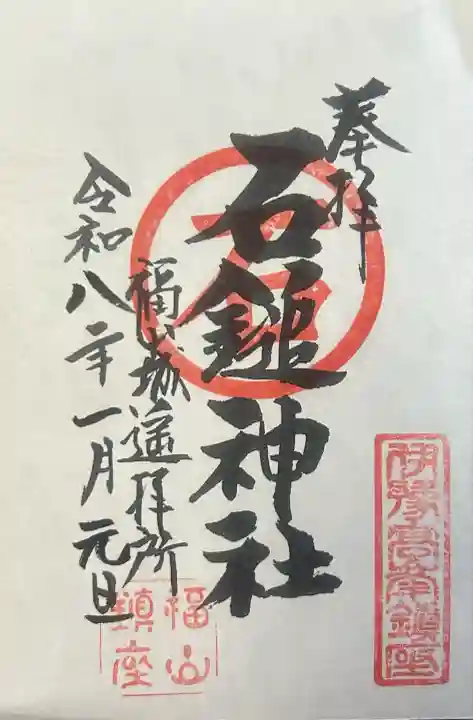 奉拝
石鎚神社
福城遥拝所
令和八年一月元旦
伊豫高峯鎮座
福山
鎮座